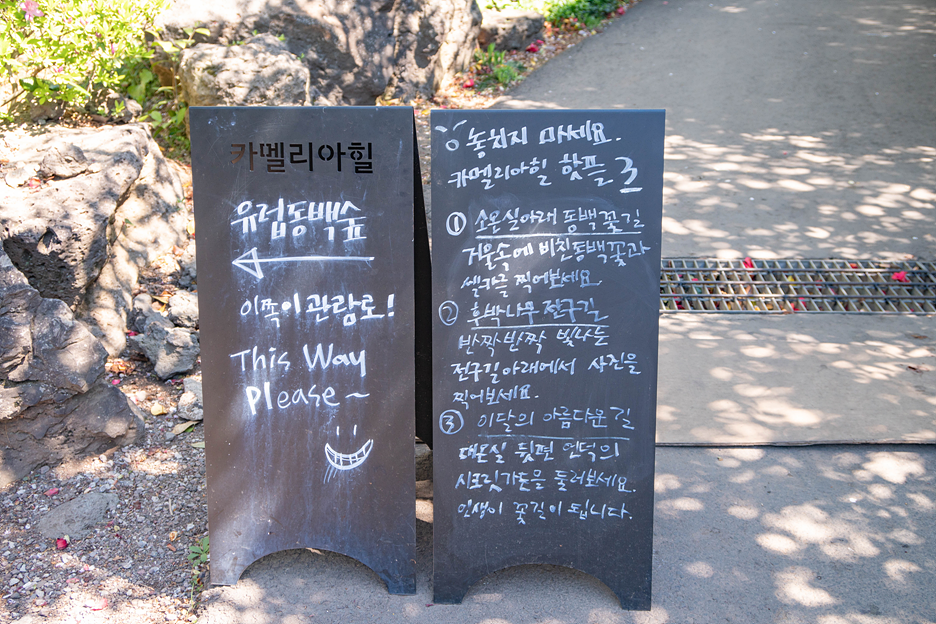 카멜리아힐
유럽동백숲
이쪽이 관람로!
This Way
Please~
놓치지 마세요.
카멜리아힐 핫플 3
① 소온실아래 동백꽃길
거울속에 비친동백꽃과
셀카를 찍어보세요.
② 후박나무 전구길
반짝반짝 빛나는
전구길아래에서 사진을
찍어보세요.
③ 이달의 아름다운 길
대온실 뒷편 언덕의
시크릿가든을 둘러보세요.
인생이 꽃길이 됩니다.